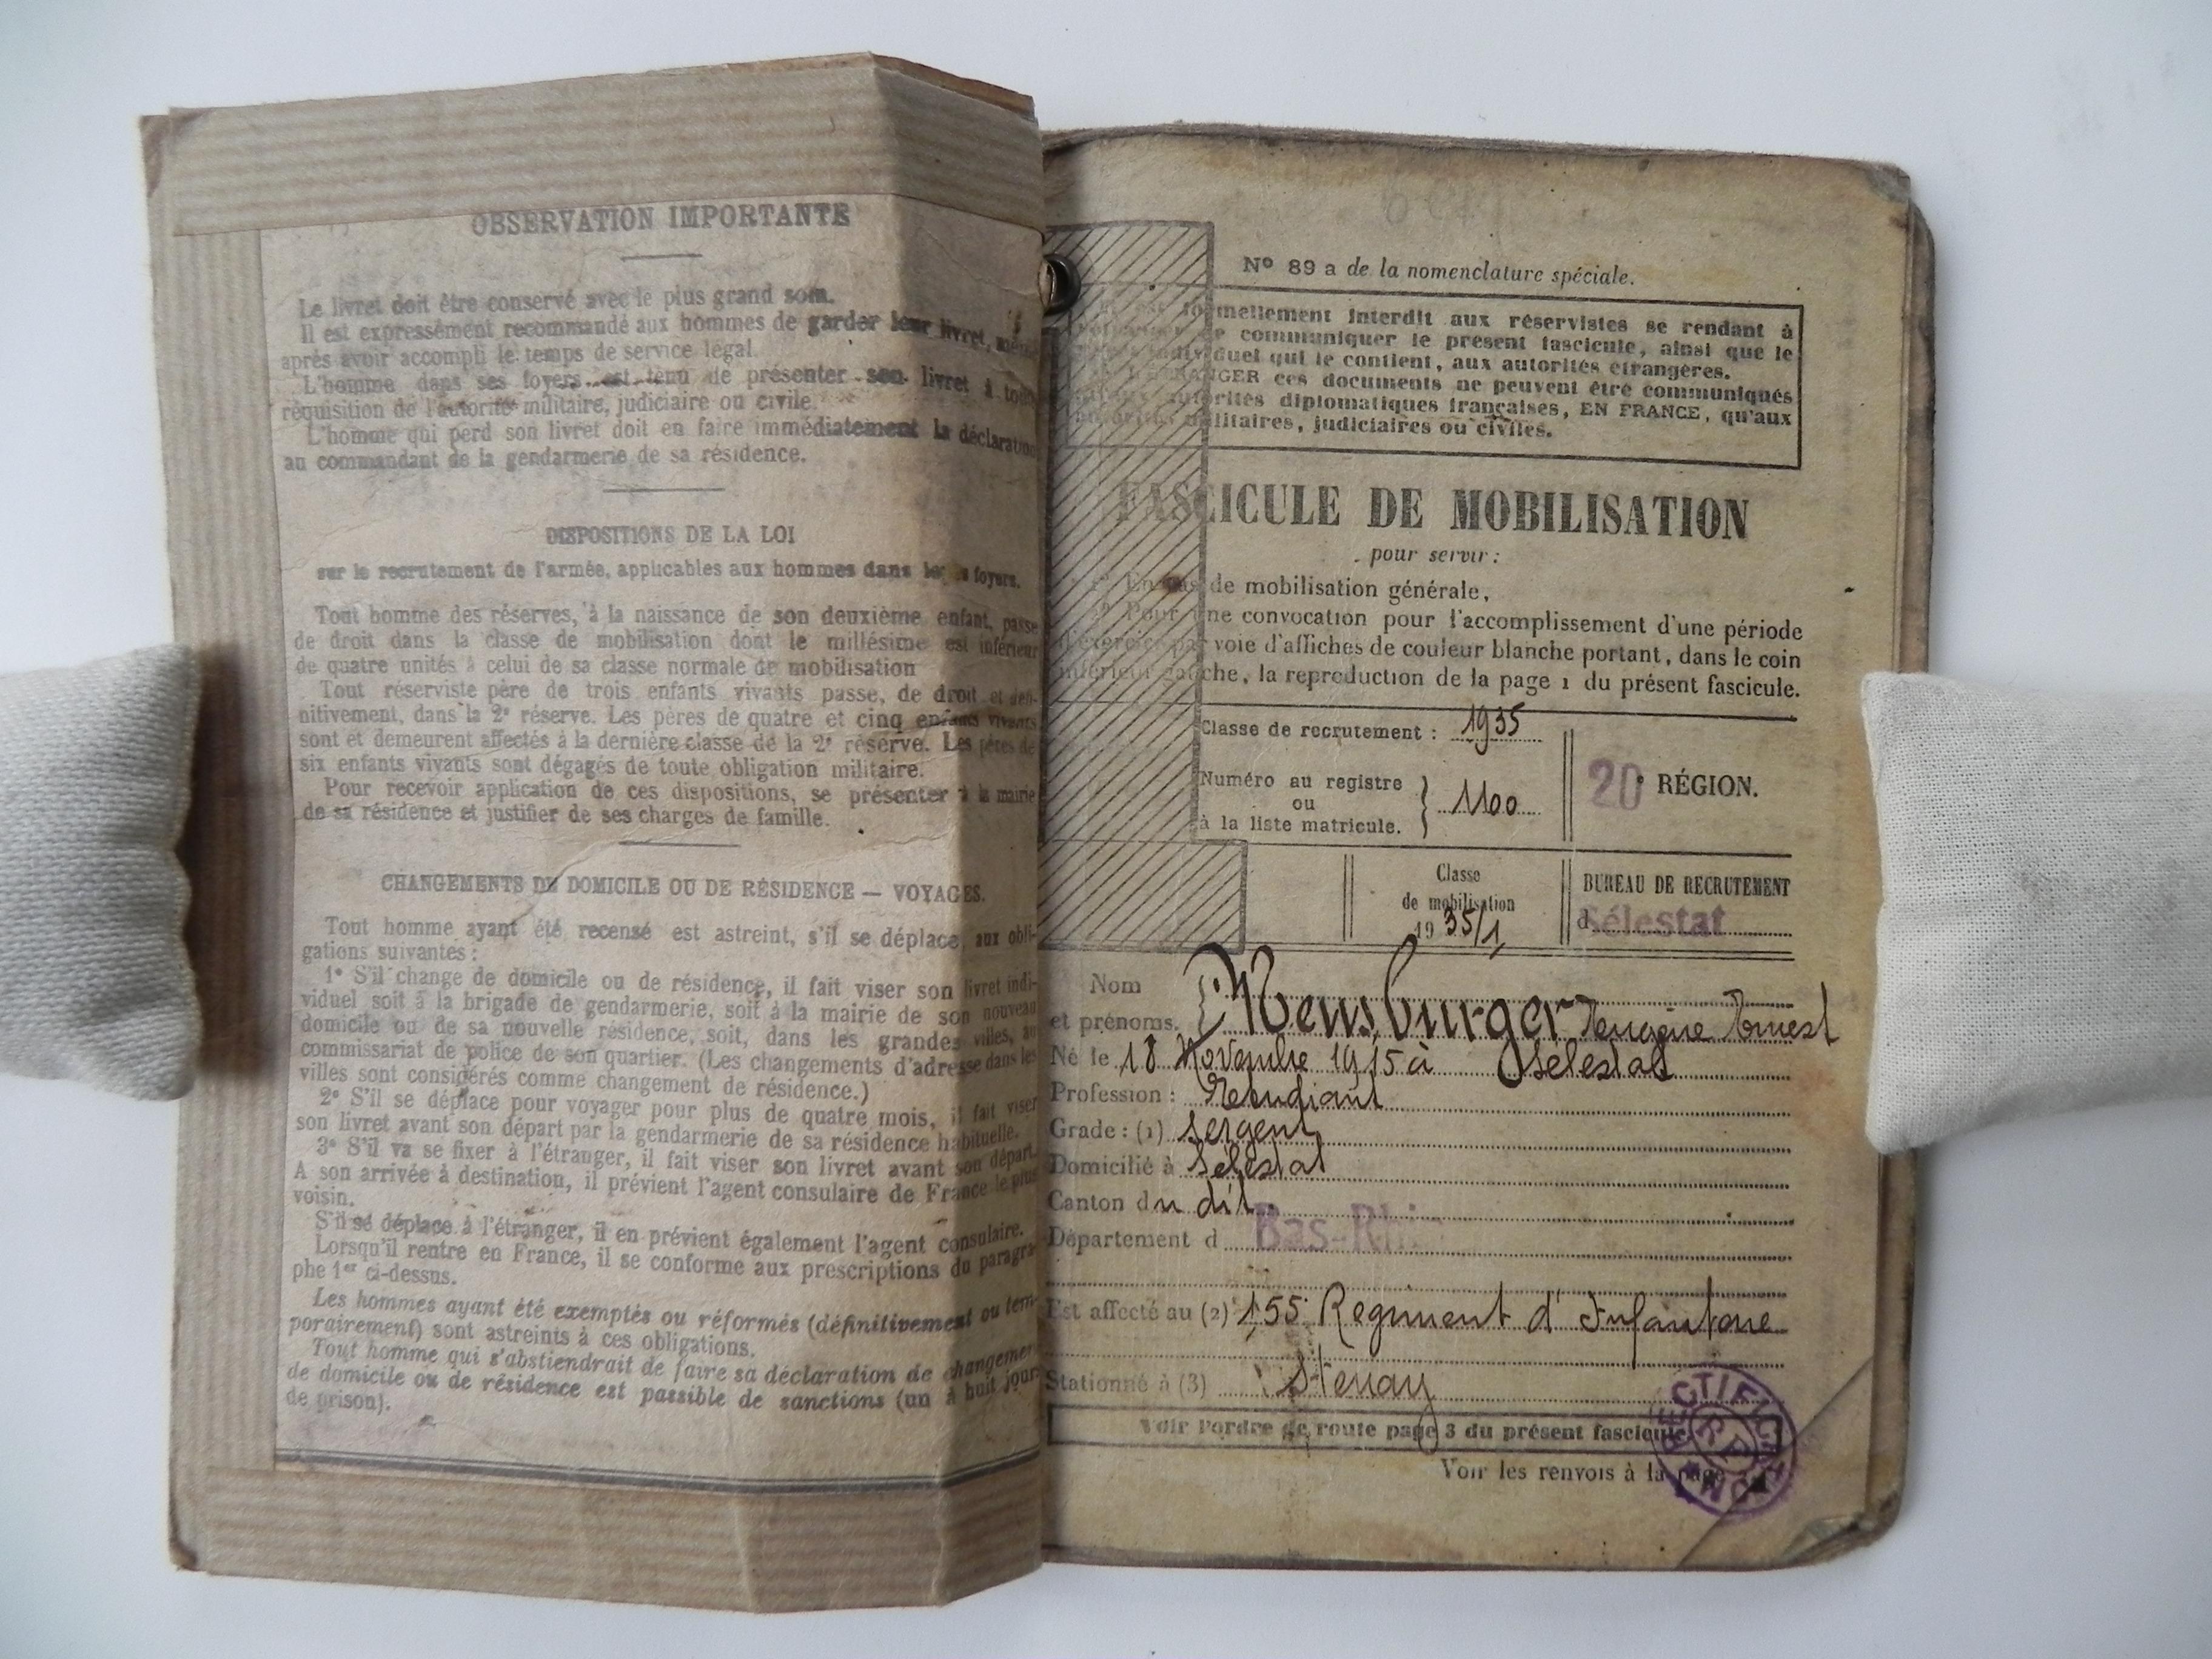 OBSERVATION IMPORTANTE
Le livret doit être conservé avec le plus grand soin.
Il est expressément recommandé aux hommes de garder leur livret, même
après avoir accompli le temps de service légal.
L'homme dans ses foyers est tenu de présenter son livret à toute
réquisition de l'autorité militaire, judiciaire ou civile.
L'homme qui perd son livret doit en faire immédiatement la déclaration
au commandant de la gendarmerie de sa résidence.
DISPOSITIONS DE LA LOI
sur le recrutement de l'armée, applicables aux hommes dans leurs foyers.
Tout homme des réserves, à la naissance de son deuxième enfant, passe
de droit dans la classe de mobilisation dont le millésime est inférieur
de quatre unités à celui de sa classe normale de mobilisation
Tout réserviste père de trois enfants vivants passe, de droit et défi-
nitivement, dans la 2e réserve. Les pères de quatre et cinq enfants vivants
sont et demeurent affectés à la dernière classe de la 2e réserve. Les pères de
six enfants vivants sont dégagés de toute obligation militaire.
Pour recevoir application de ces dispositions, se présenter à la mairie
de sa résidence et justifier de ses charges de famille.
CHANGEMENTS DE DOMICILE OU DE RÉSIDENCE — VOYAGES.
Tout homme ayant été recensé est astreint, s'il se déplace, aux obli-
gations suivantes :
1° S'il change de domicile ou de résidence, il fait viser son livret indi-
viduel soit à la brigade de gendarmerie, soit à la mairie de son nouveau
domicile ou de sa nouvelle résidence, soit, dans les grandes villes, au
commissariat de police de son quartier. (Les changements d'adresse dans les
villes sont considérés comme changement de résidence.)
2° S'il se déplace pour voyager pour plus de quatre mois, il fait viser
son livret avant son départ par la gendarmerie de sa résidence habituelle.
3° S'il va se fixer à l'étranger, il fait viser son livret avant son départ.
A son arrivée à destination, il prévient l'agent consulaire de France le plus
voisin.
S'il se déplace à l'étranger, il en prévient également l'agent consulaire.
Lorsqu'il rentre en France, il se conforme aux prescriptions du paragra-
phe 1er ci-dessus.
Les hommes ayant été exemptés ou réformés (définitivement ou tem-
porairement) sont astreints à ces obligations.
Tout homme qui s'abstiendrait de faire sa déclaration de changement
de domicile ou de résidence est passible de sanctions (un à huit jours
de prison).
N° 89 a de la nomenclature spéciale.
formellement interdit aux réservistes se rendant à
communiquer le présent fascicule, ainsi que le
individuel qui le contient, aux autorités étrangères.
A L'ÉTRANGER ces documents ne peuvent être communiqués
autorités diplomatiques françaises, EN FRANCE, qu'aux
autorités militaires, judiciaires ou civiles.
FASCICULE DE MOBILISATION
pour servir :
1° En cas de mobilisation générale,
2° Pour une convocation pour l'accomplissement d'une période
d'exercice par voie d'affiches de couleur blanche portant, dans le coin
inférieur gauche, la reproduction de la page 1 du présent fascicule.
Classe de recrutement : 1935
Numéro au registre
ou
à la liste matricule. } 1100
20e RÉGION.
Classe
de mobilisation
1935/1
BUREAU DE RECRUTEMENT
d Sélestat
Nom
et prénoms. Mensburger Eugène Ernest
Né le 18 Novembre 1915 à Sélestat
Profession : Etudiant
Grade : (1) Sergent
Domicilié à Sélestat
Canton du dit
Département d Bas-Rhin
Est affecté au (2) 155 Régiment d'Infanterie
Stationné à (3) Stenay
Voir l'ordre de route page 3 du présent fascicule.
Voir les renvois à la page
RECTIFICATION